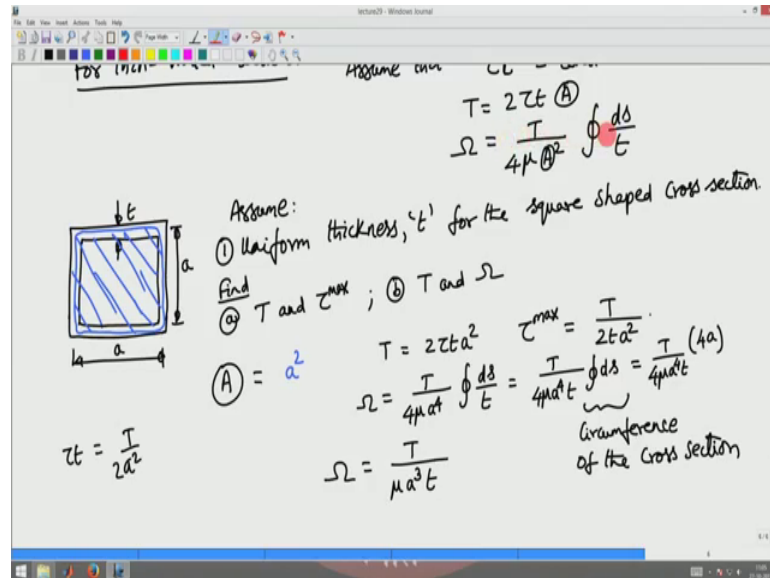 lecture29 - Windows Journal
File Edit View Insert Actions Tools Help
Page Width
B I
Assume that
T = 2τt A
Ω = T / 4μA² ∮ ds/t
t
a
a
Assume:
① Uniform thickness, 't' for the square shaped cross section.
Find
ⓐ T and τ^max ; ⓑ T and Ω
A = a²
T = 2τta²
τ^max = T / 2ta² .
Ω = T / 4μa⁴ ∮ ds/t = T / 4μa⁴t ∮ ds = T / 4μa⁴t (4a)
Circumference
of the cross section
τt = T / 2a²
Ω = T / μa³t
6/6
6